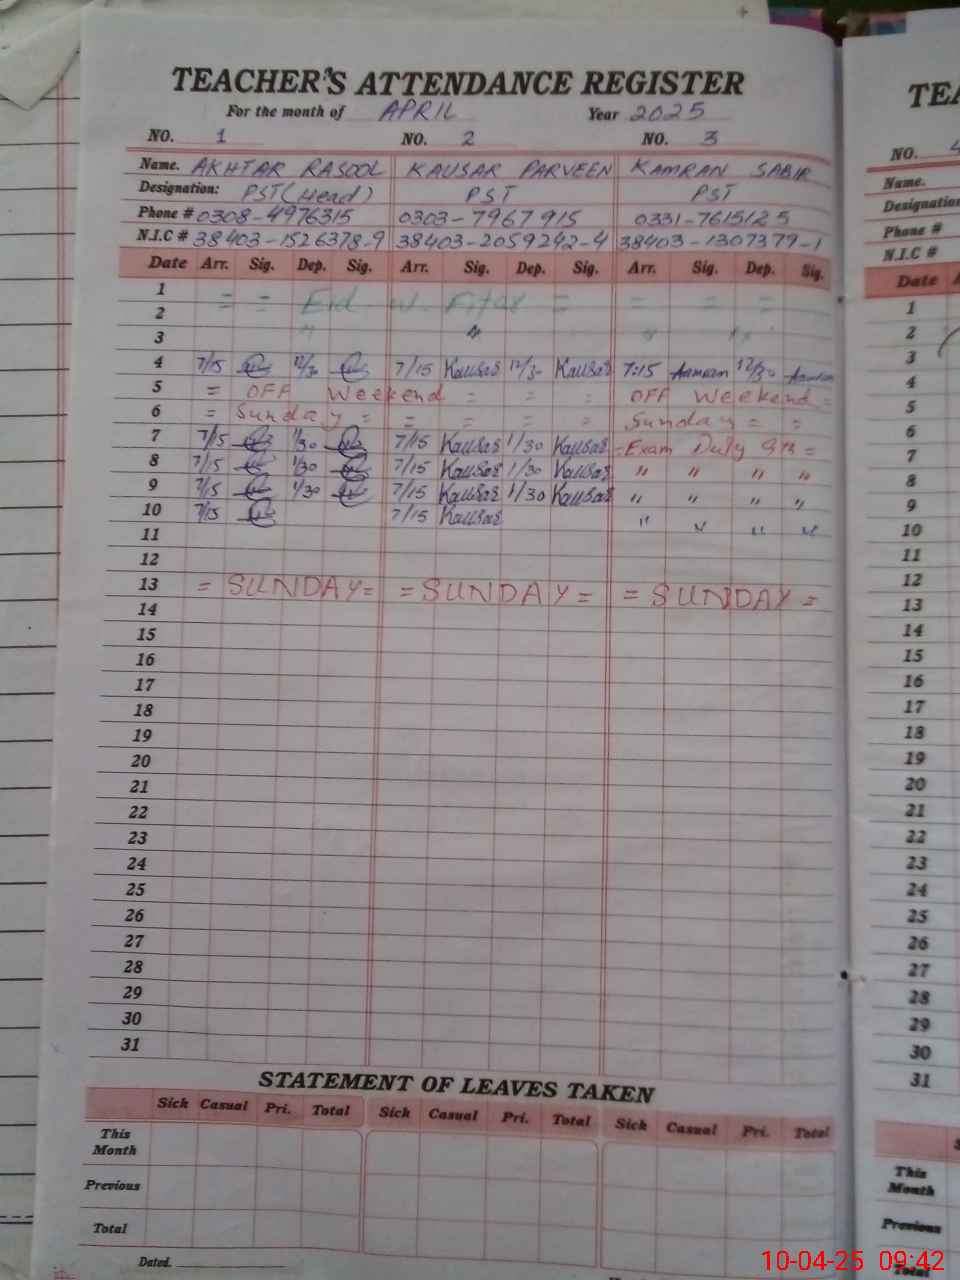 TEACHER'S ATTENDANCE REGISTER
For the month of APRIL Year 2025
NO. 1 NO. 2 NO. 3
Name. AKHTAR RASOOL KAUSAR PARVEEN KAMRAN SABIR
Designation: PST (Head) PST PST
Phone # 0308-4976315 0303-7967915 0331-7615125
N.I.C # 38403-1526378-9 38403-2059242-4 38403-1307379-1
Date Arr. Sig. Dep. Sig. Arr. Sig. Dep. Sig. Arr. Sig. Dep. Sig.
1 = = Eid = = = =
2
3 " " " "
4 7/15 12/30 7/15 Kausar 12/30 Kausar 7:15 Kamran 12/30 Kamran
5 = OFF Weekend = = = OFF Weekend =
6 = Sunday = = = = = Sunday = =
7 7/15 1/30 7/15 Kausar 1/30 Kausar = Exam Duty 9th =
8 7/15 1/30 7/15 Kausar 1/30 Kausar " " " "
9 7/15 1/30 7/15 Kausar 1/30 Kausar " " " "
10 7/15 7/15 Kausar " " " "
11
12
13 = SUNDAY = = SUNDAY = = SUNDAY =
14
15
16
17
18
19
20
21
22
23
24
25
26
27
28
29
30
31
STATEMENT OF LEAVES TAKEN
Sick Casual Pri. Total Sick Casual Pri. Total Sick Casual Pri. Total
This Month
Previous
Total
Dated.
TEA
NO. 4
Name.
Designation
Phone #
N.I.C #
Date
1
2
3
4
5
6
7
8
9
10
11
12
13
14
15
16
17
18
19
20
21
22
23
24
25
26
27
28
29
30
31
This Month
Previous
Total
10-04-25 09:42